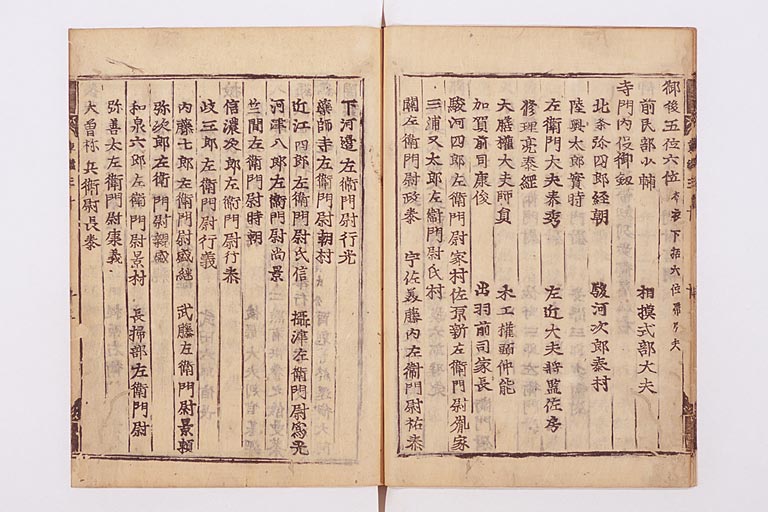 御後五位六位 布衣下括六位帯弓矢
前民部少輔 相摸式部大夫
寺門内役御釼
北条弥四郎経朝 駿河次郎泰村
陸奥太郎実時
左衛門大夫泰秀 左近大夫将監佐房
修理亮泰經
大膳権大夫師員 木工權頭仲能
加賀前司康俊 出羽前司家長
駿河四郎左衛門尉家村 佐原新左衛門尉胤家
三浦又太郎左衛門尉氏村
關左衛門尉政泰 宇佐美藤内左衛門尉祐泰
下河邊左衛門尉行光
藥師寺左衛門尉朝村
近江四郎左衛門尉氏信 攝津左衛門尉爲光
河津八郎左衛門尉尚景
笠間左衛門尉時朝
信濃次郎左衛門尉行泰
岐三郎左衛門尉行義
内藤七郎左衛門尉盛継 武藤左衛門尉景頼
弥次郎左衛門尉親盛
和泉六郎左衛門尉景村 長掃部左衛門尉
弥善太左衛門尉康義
大曽祢兵衛尉長泰